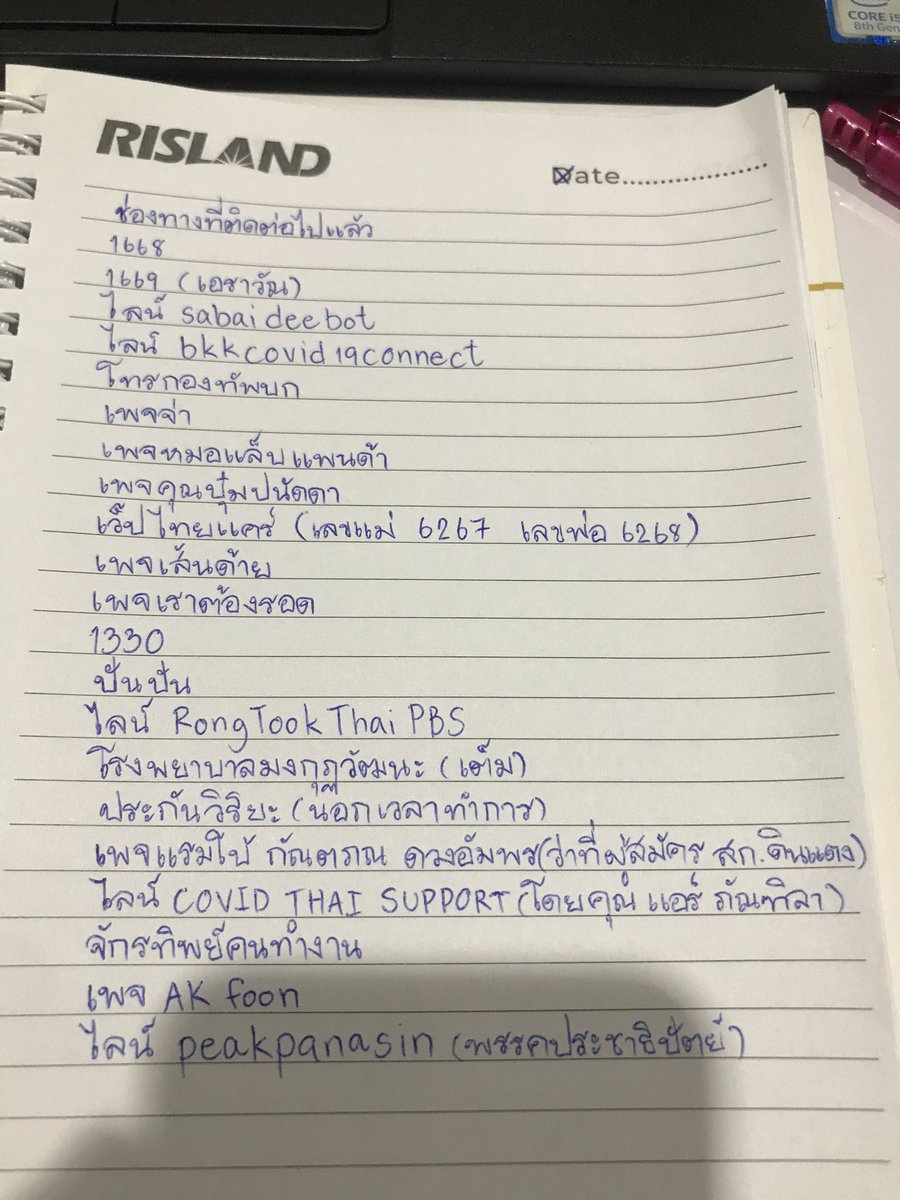 CORE i5
8th Gen
RISLAND
Date....................
ช่องทางที่ติดต่อไปแล้ว
1668
1669 (เอราวัณ)
ไลน์ sabaideebot
ไลน์ bkkcovid19connect
โทรกองทัพบก
เพจจ่า
เพจหมอแล็บแพนด้า
เพจคุณปุ๋มปนัดดา
เว็ปไทยแคร์ (เลขแม่ 6267 เลขพ่อ 6268)
เพจเส้นด้าย
เพจเราต้องรอด
1330
ปันปัน
ไลน์ RongTookThaiPBS
โรงพยาบาลมงกุฏวัฒนะ (เต็ม)
ประกันวิริยะ (นอกเวลาทำการ)
เพจแรมโบ้ กัณตภณ ดวงอัมพร(ว่าที่ผู้สมัคร สก.ดินแดง)
ไลน์ COVID THAI SUPPORT (โดยคุณ แอร์ ภัณฑิลา)
จักรทิพย์คนทำงาน
เพจ AK foon
ไลน์ peakpanasin (พรรคประชาธิปัตย์)